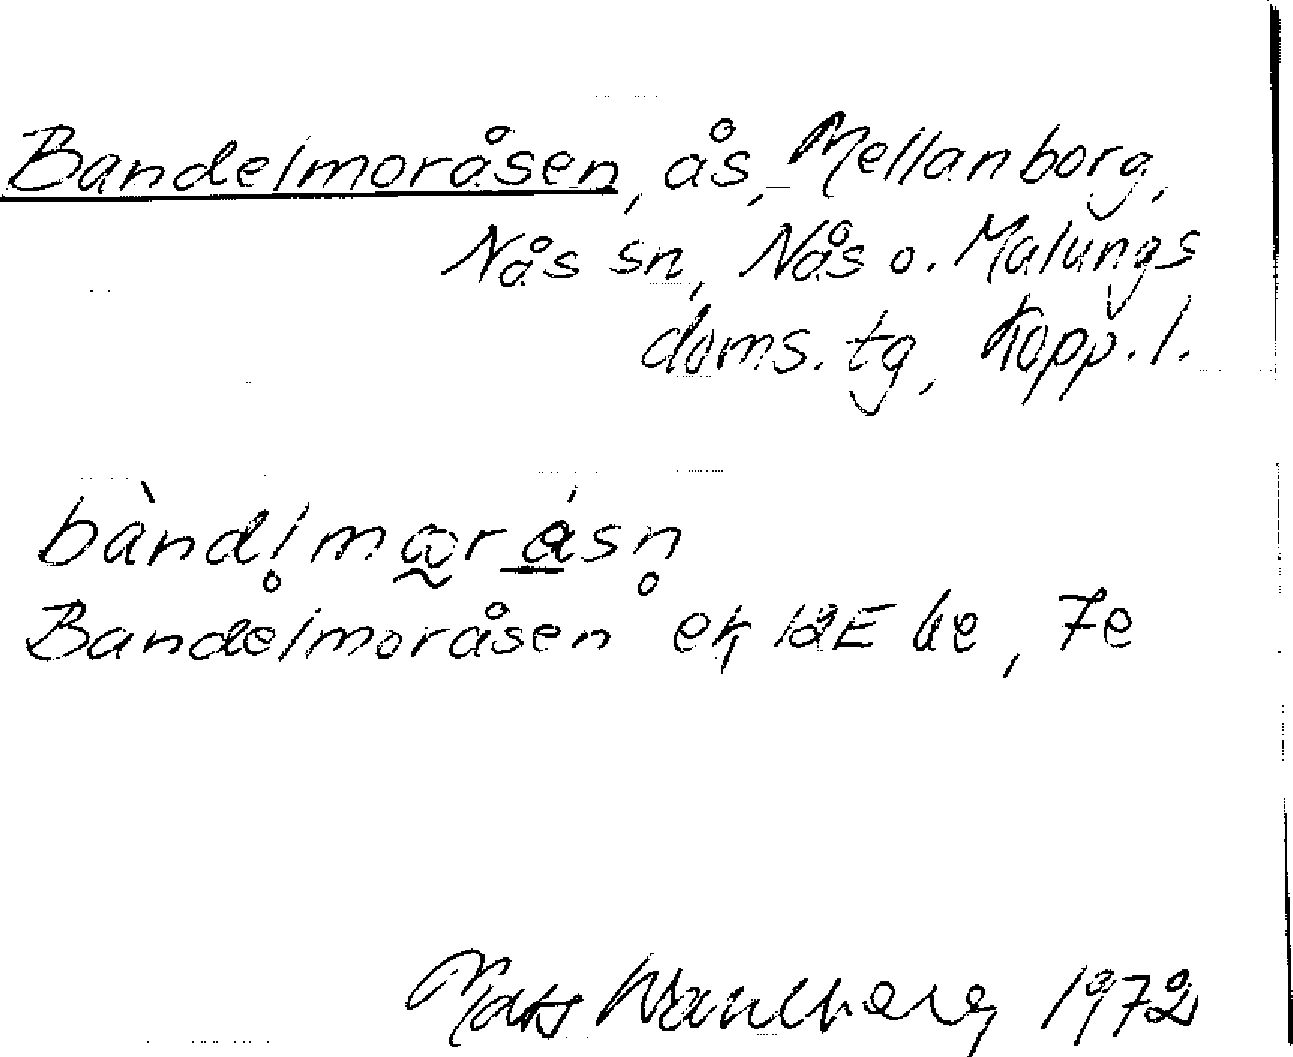 Bandelmoråsen, ås, Mellanborg,
Nås sn, Nås o. Malungs
doms. tg, Kopp. l.
bàndl̥mωr ásn̥
Bandelmoråsen ek 12E, 7e
Mats Wahlberg 1972